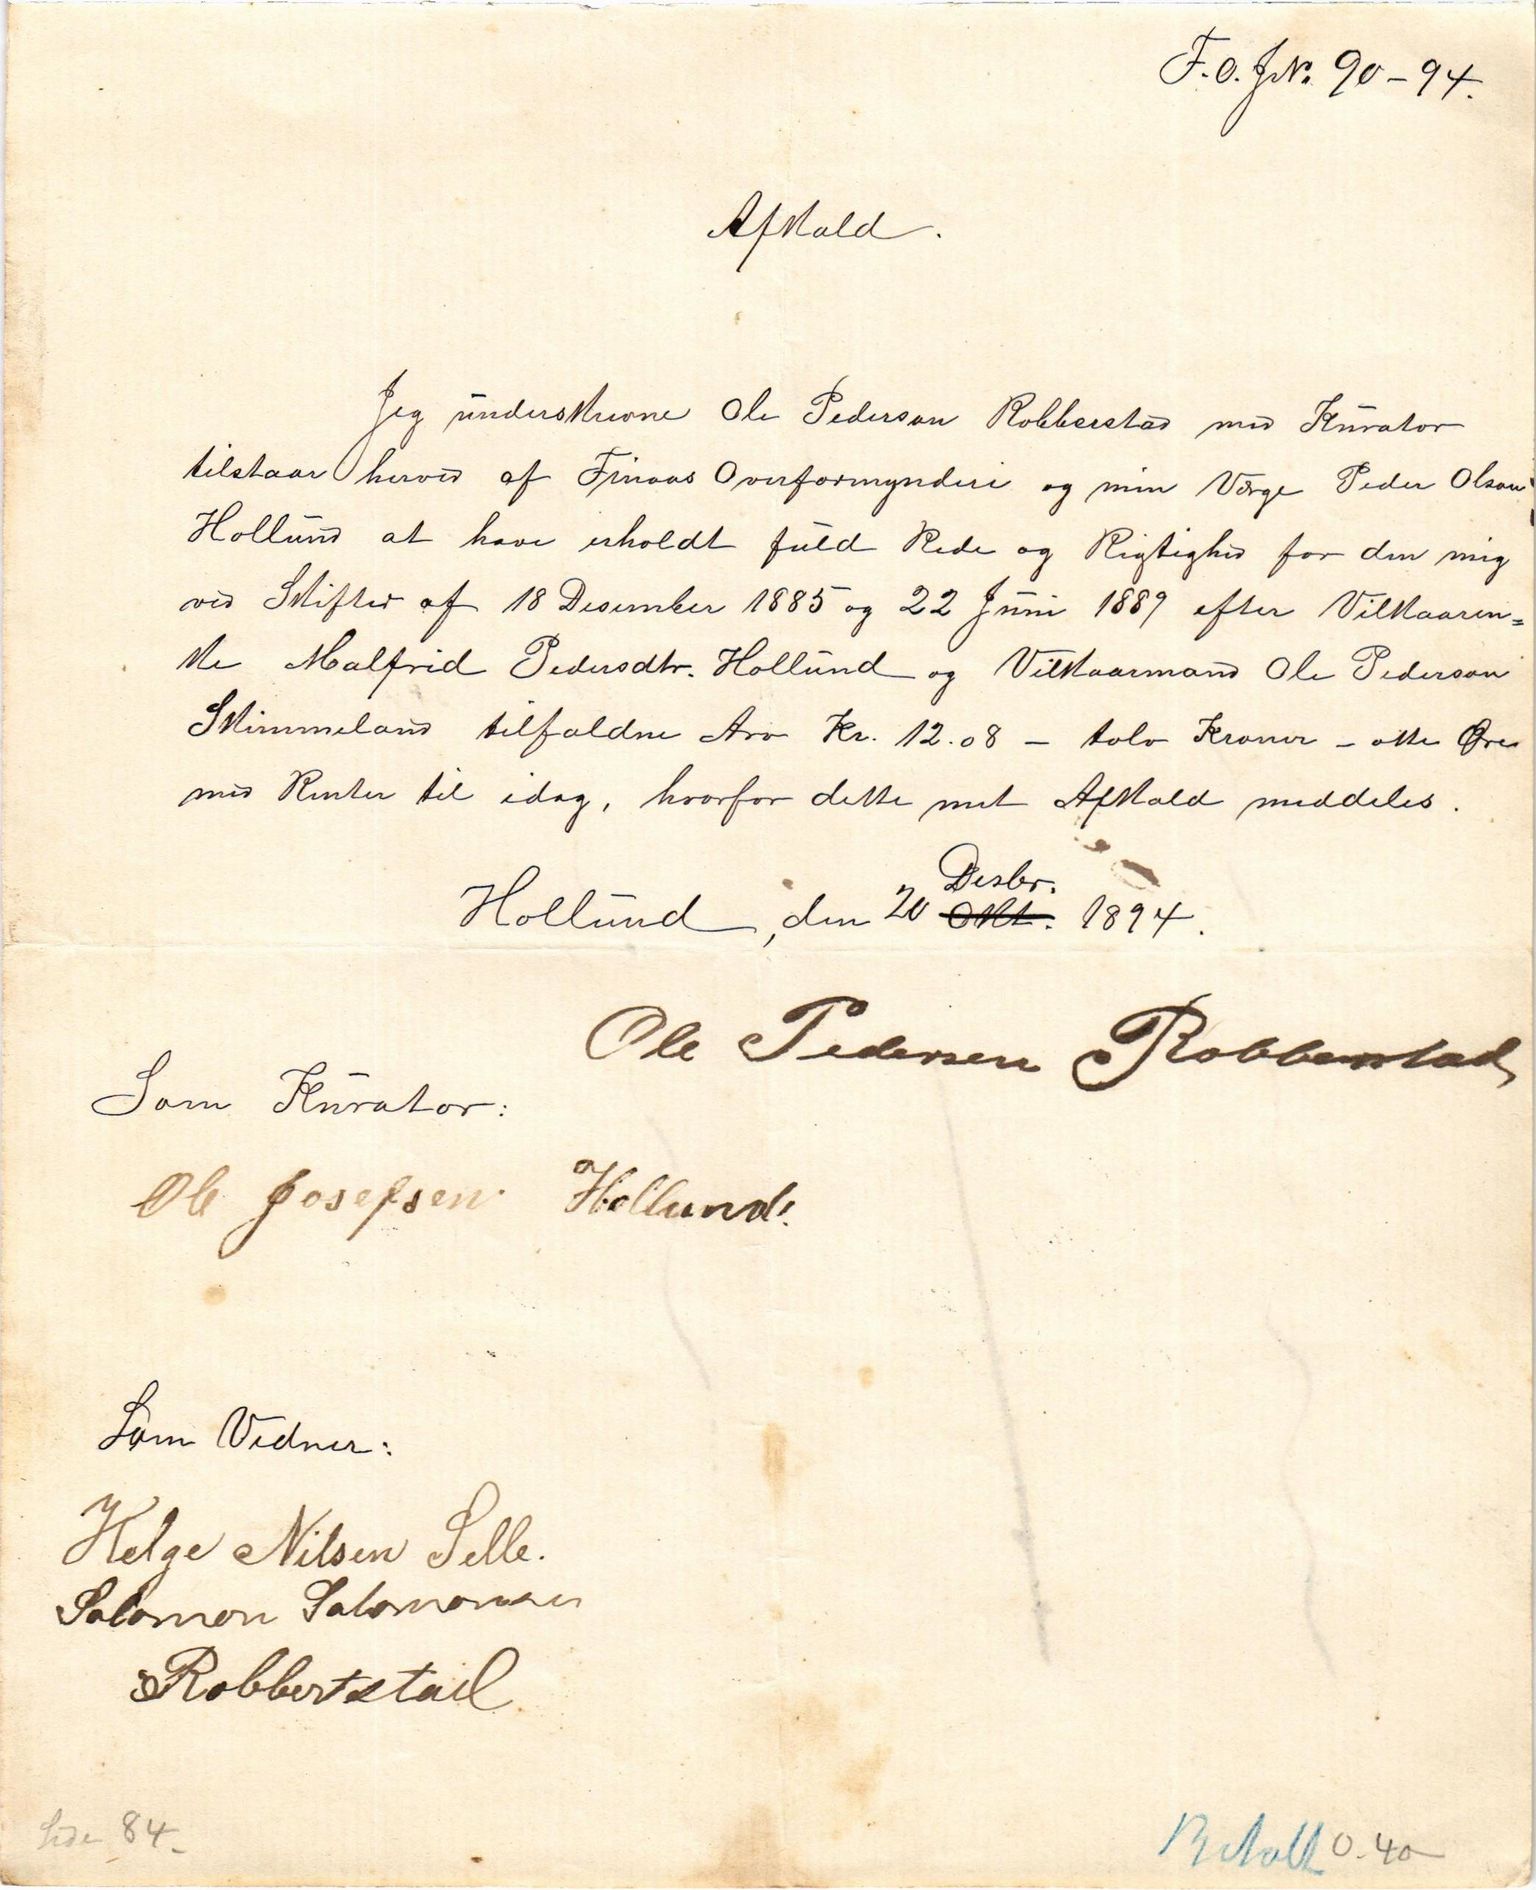 F. O. J№. 90 - 94.
Afkald.
Jeg underskrevne Ole Pederson Robberstad med Kurator
tilstaar herved af Finaas Overformynderi og min Værge Peder Olson
Hollund at have erholdt fuld Rede og Rigtighed for den mig
ved Skifter af 18 Desember 1885 og 22 Juni 1889 efter Vilkaaren=
ke Malfrid Pedersdtr. Hollund og Vilkaarmand Ole Pederson
Skimmeland tilfaldne Arv Kr. 12.08 - tolv Kroner - otte Øre
med Renter til idag, hvorfor dette mit Afkald meddeles.
Hollund, den 20 Desbr. Okt. 1894.
Ole Pedersen Robberstad
Som Kurator:
Ole Josefsen Hollund.
Som Vidner:
Helge Nilsen Selle.
Salomon Salomonsen
Robbertstad
Side 84.
Betalt 0.40